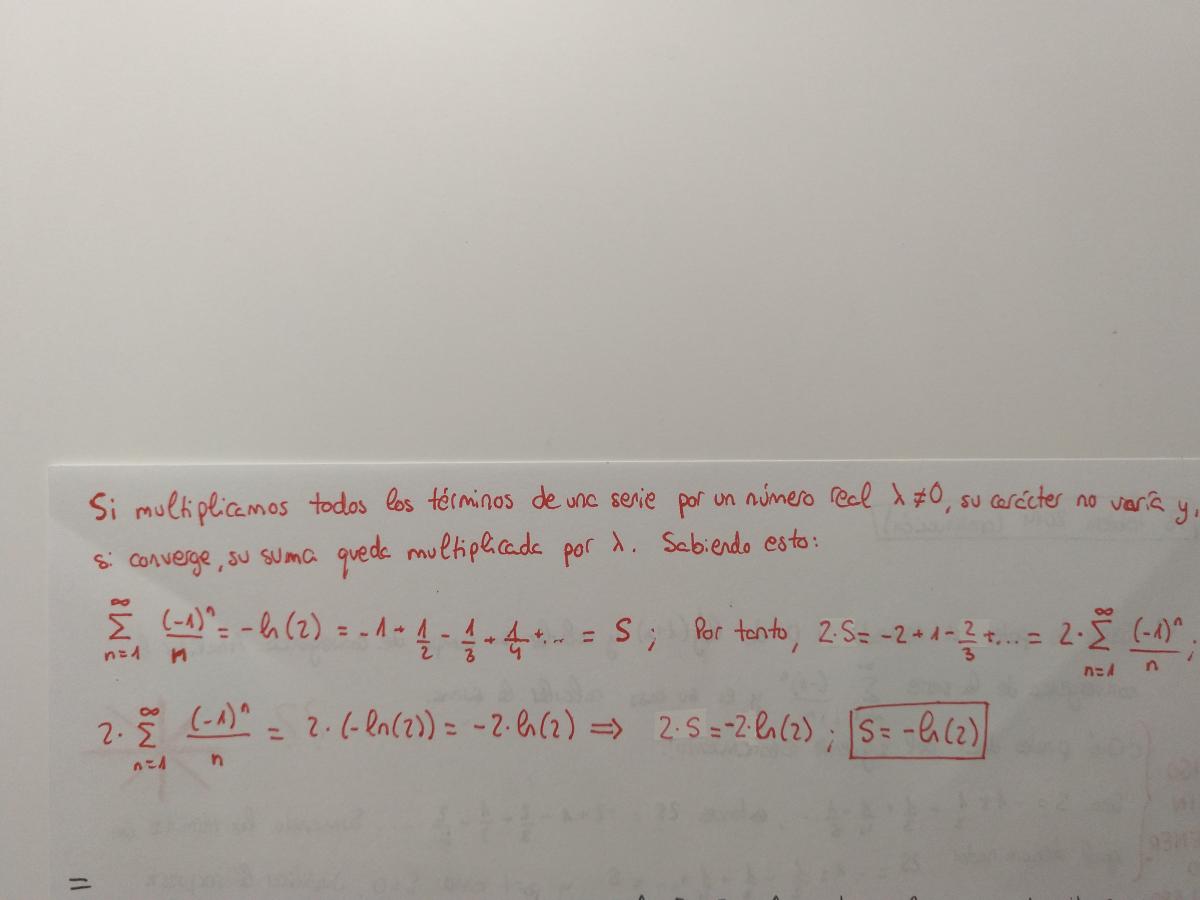 Si multiplicamos todos los términos de una serie por un número real λ ≠ 0, su carácter no varía y,
si converge, su suma queda multiplicada por λ. Sabiendo esto:
∞ Σ n=1 (-1)^n / n = -ln(2) = -1 + 1/2 - 1/3 + 1/4 + ... = S ; Por tanto, 2·S = -2 + 1 - 2/3 + ... = 2· ∞ Σ n=1 (-1)^n / n ;
2· ∞ Σ n=1 (-1)^n / n = 2·(-ln(2)) = -2·ln(2) ⇒ 2·S = -2·ln(2) ; S = -ln(2)
=